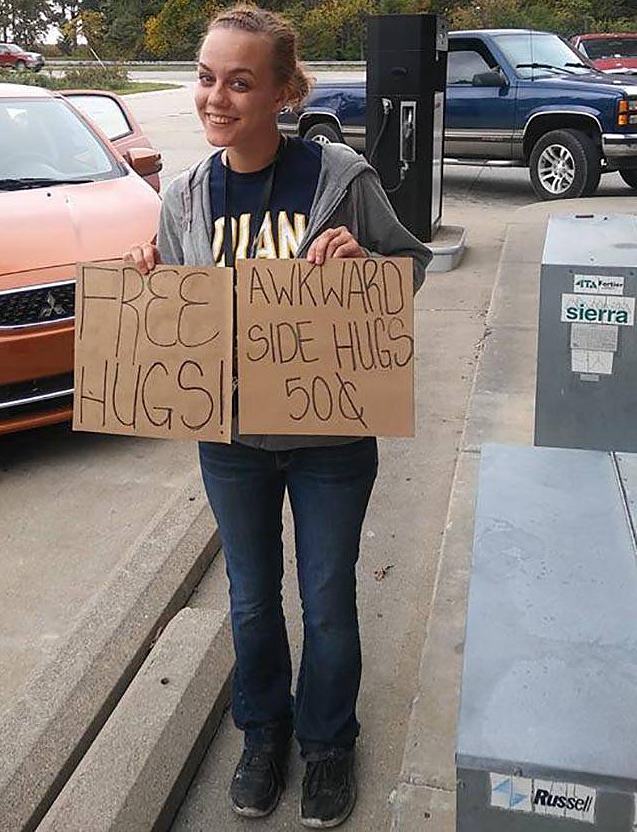 DIAN
FREE
HUGS!
AWKWARD
SIDE HUGS
50¢
ATA Fortier
sierra
Russell